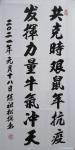 共克時艱鼠年抗疫
發揮力量牛氣冲天
二〇二一年元月十八日